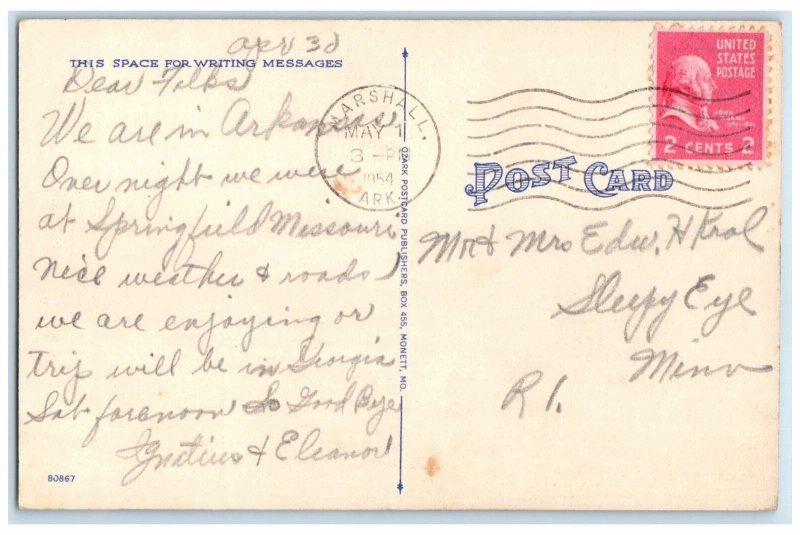 apr 30
THIS SPACE FOR WRITING MESSAGES
Dear Folks
We are in Arkansas
Over night we were
at Springfield Missouri
Nice weather & roads
we are enjoying or
trip will be in Georgia
Sat forenoon So Good Bye
Ignatius & Eleanor
80867
MARSHALL,
MAY 1
3 - PM
1954
ARK.
OZARK POSTCARD PUBLISHERS, BOX 455, MONETT, MO.
UNITED
STATES
POSTAGE
JOHN
ADAMS
2 CENTS 2
POST CARD
Mr & Mrs Edw. H Krol
Sleepy Eye
Minn
R 1.